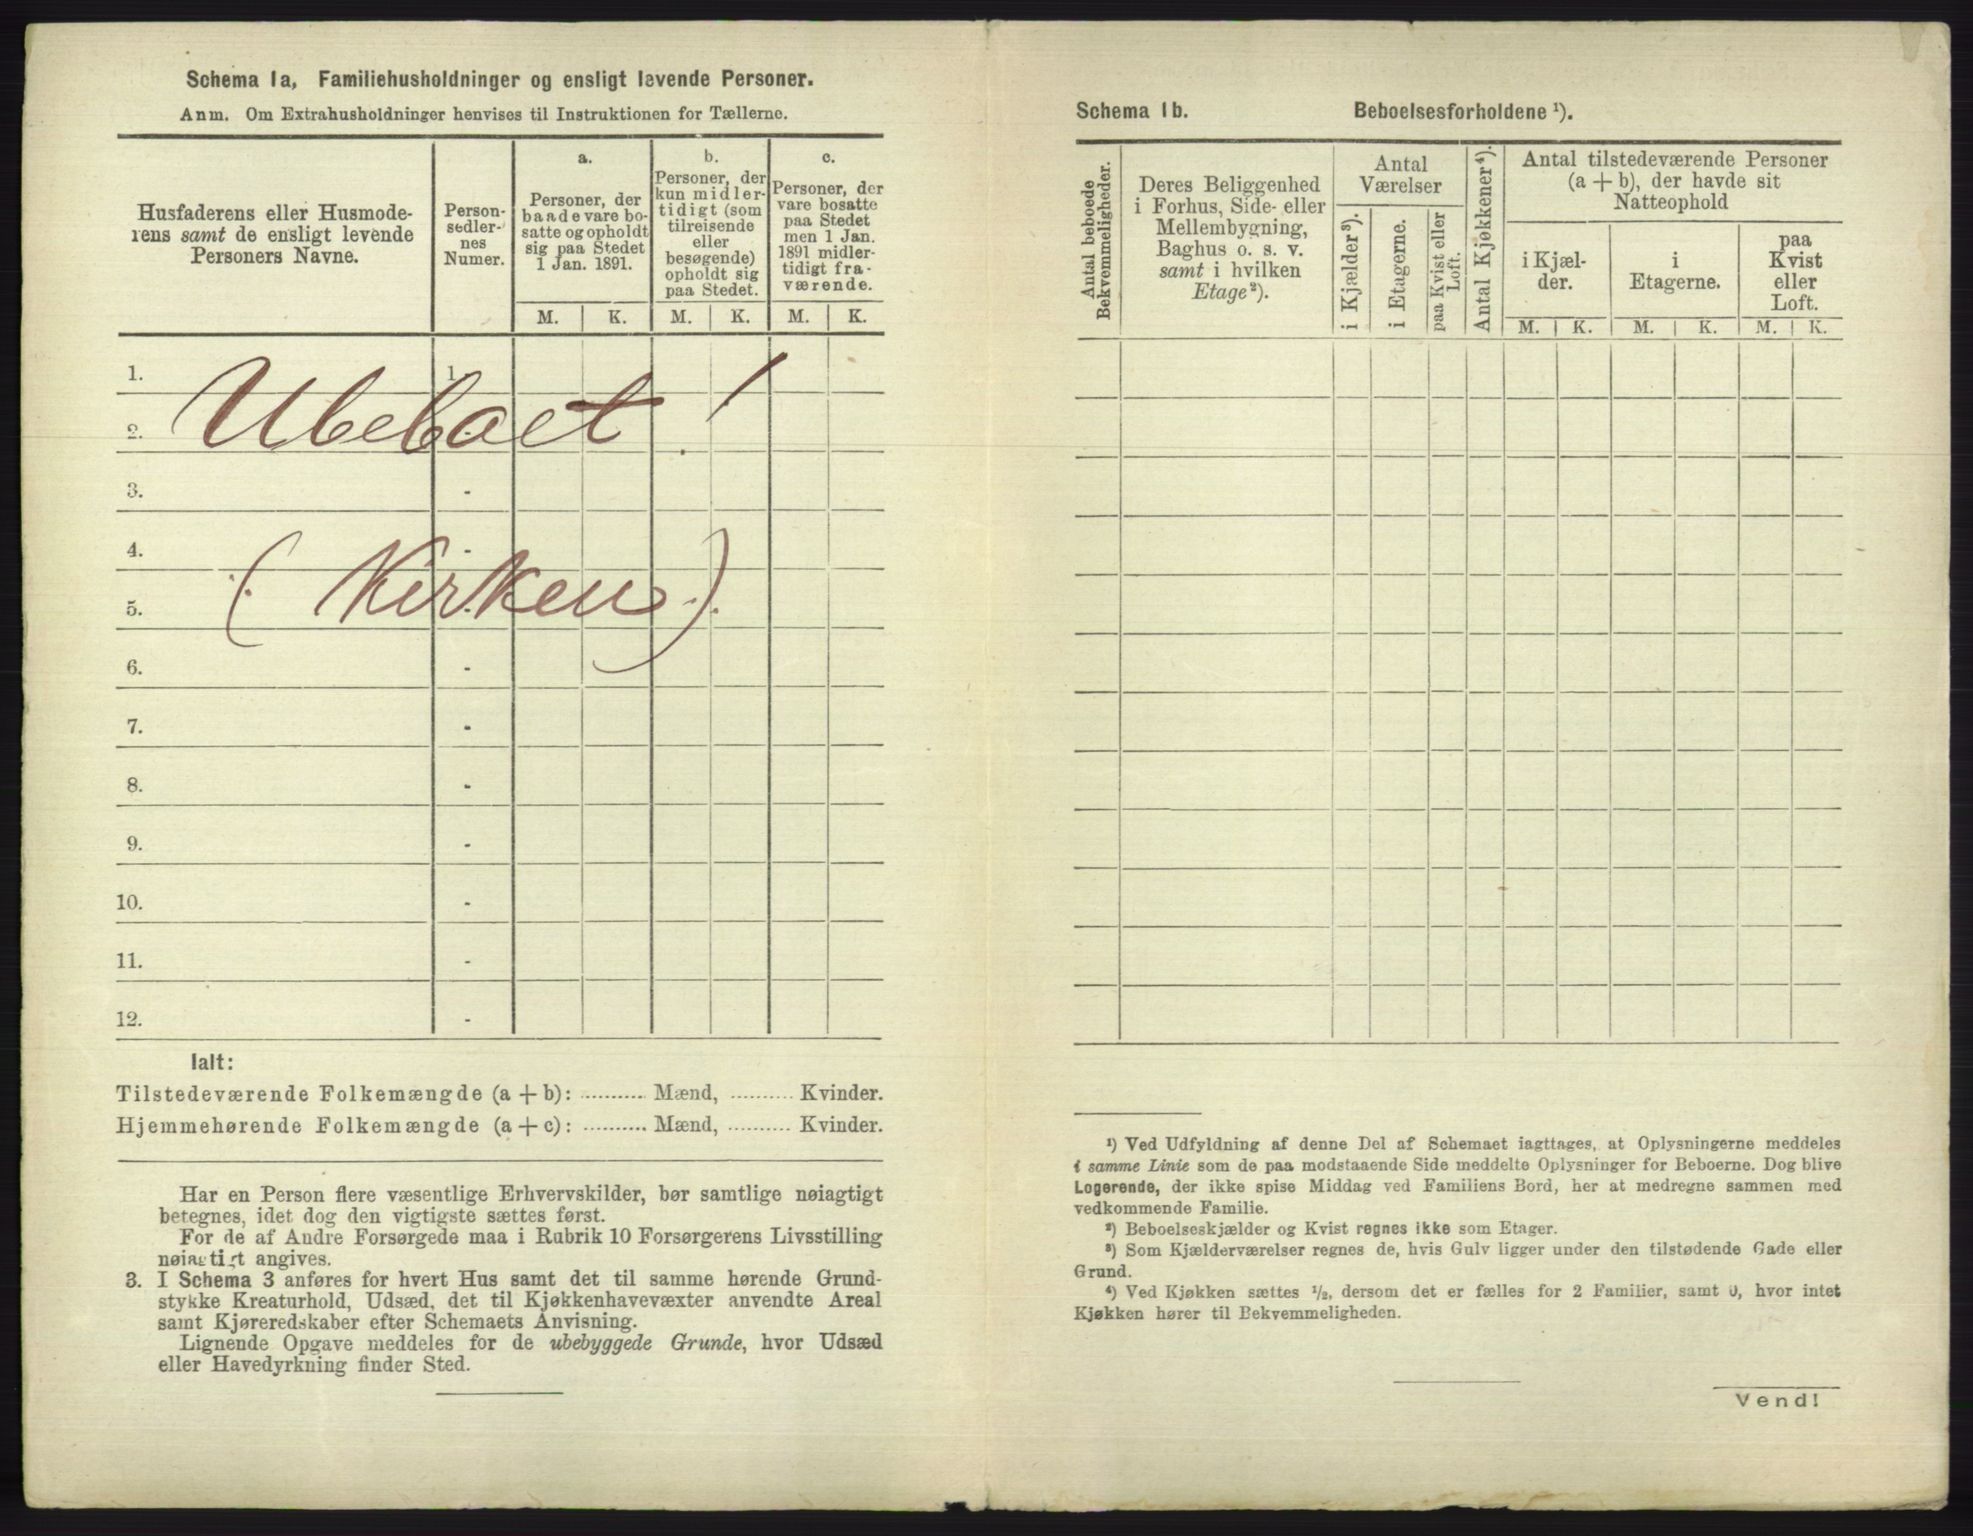 Schema 1a, Familiehusholdninger og ensligt levende Personer.
Anm. Om Extrahusholdninger henvises til Instruktionen for Tællerne.
Husfaderens eller Husmode-
rens samt de ensligt levende
Personers Navne.
Person-
sedler-
nes
Numer.
a.
Personer, der
baade vare bo-
satte og opholdt
sig paa Stedet
1 Jan. 1891.
b.
Personer, der
kun midler-
tidigt (som
tilreisende
eller
besøgende)
opholdt sig
paa Stedet.
c.
Personer, der
vare bosatte
paa Stedet
men 1 Jan.
1891 midler-
tidigt fra-
værende.
M. K. M. K. M. K.
1. 1.
2.
Ubeboet!
3. -
4. -
5.
(Kirken)
6. -
7. -
8. -
9. -
10. -
11. -
12. -
Ialt:
Tilstedeværende Folkemængde (a + b): .......... Mænd, .......... Kvinder.
Hjemmehørende Folkemængde (a + c): .......... Mænd, .......... Kvinder.
Har en Person flere væsentlige Erhvervskilder, bør samtlige nøiagtigt
betegnes, idet dog den vigtigste sættes først.
For de af Andre Forsørgede maa i Rubrik 10 Forsørgerens Livsstilling
nøiagtigt angives.
3. I Schema 3 anføres for hvert Hus samt det til samme hørende Grund-
stykke Kreaturhold, Udsæd, det til Kjøkkenhavevæxter anvendte Areal
samt Kjøreredskaber efter Schemaets Anvisning.
Lignende Opgave meddeles for de ubebyggede Grunde, hvor Udsæd
eller Havedyrkning finder Sted.
Schema 1b. Beboelsesforholdene ¹).
Antal beboede
Bekvemmeligheder.
Deres Beliggenhed
i Forhus, Side- eller
Mellembygning,
Baghus o. s. v.
samt i hvilken
Etage²).
Antal
Værelser
i Kjælder³).
i Etagerne.
paa Kvist eller
Loft.
Antal Kjøkkener⁴).
Antal tilstedeværende Personer
(a + b), der havde sit
Natteophold
i Kjæl-
der.
i
Etagerne.
paa
Kvist
eller
Loft.
M. K. M. K. M. K.
¹) Ved Udfyldning af denne Del af Schemaet iagttages, at Oplysningerne meddeles
i samme Linie som de paa modstaaende Side meddelte Oplysninger for Beboerne. Dog blive
Logerende, der ikke spise Middag ved Familiens Bord, her at medregne sammen med
vedkommende Familie.
²) Beboelseskjælder og Kvist regnes ikke som Etager.
³) Som Kjælderværelser regnes de, hvis Gulv ligger under den tilstødende Gade eller
Grund.
⁴) Ved Kjøkken sættes ½, dersom det er fælles for 2 Familier, samt 0, hvor intet
Kjøkken hører til Bekvemmeligheden.
Vend!